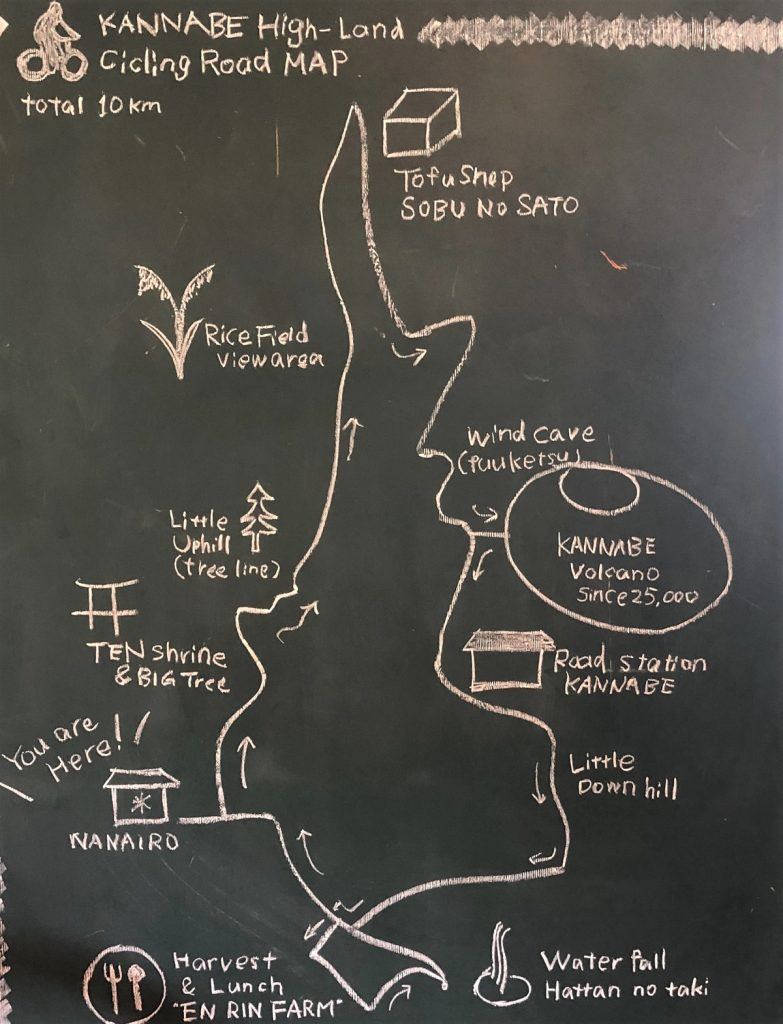 KANNABE High-Land
Cicling Road MAP
total 10km
Tofu Shop
SOBU NO SATO
Rice Field
view area
Wind cave
(fuuketsu)
Little
Uphill
(tree line)
KANNABE
Volcano
Since 25,000
TEN shrine
& BIG Tree
Road station
KANNABE
You are
Here!!
Little
Down hill
NANAIRO
Harvest
& Lunch
"EN RIN FARM"
Water fall
Hattan no taki